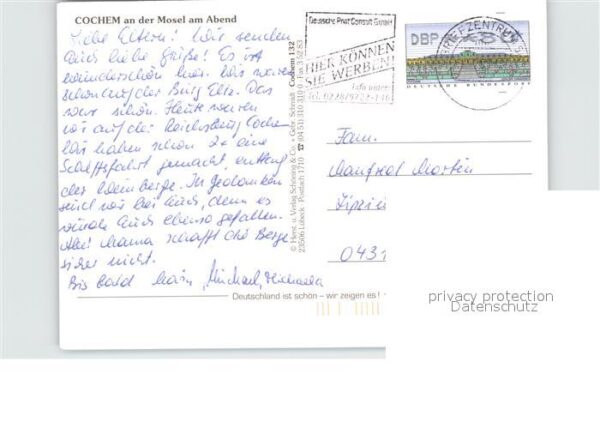 COCHEM an der Mosel am Abend
Liebe Eltern! Wir senden
Euch liebe Grüße! Es ist
wunderschön hier. Wir waren
schon auf der Burg Eltz. Das
war schön. Heute waren
wir auf der Reichsburg Cochem
Wir haben schon 2x eine
Schiffsfahrt gemacht, entlang
der Weinberge. In Gedanken
sind wir bei Euch, denn es
würde Euch ebenso gefallen.
Aber Mama schafft die Berge
sicher nicht.
Bis bald Michael, Michaela
Deutschland ist schön – wir zeigen es!
© Herst. u. Verlag Schöning & Co. + Gebr. Schmidt Cochem 132
23506 Lübeck · Postfach 1710 ☎ (04 51) 310 31 0 · Fax 3 52 83
Deutsche Post Consult GmbH
HIER KÖNNEN
SIE WERBEN!
Info unter:
Tel. 0228/9722-146
BRIEFZENTRUM
DBP
DEUTSCHE BUNDESPOST
Fam.
Manfred Martin
0431
privacy protection
Datenschutz